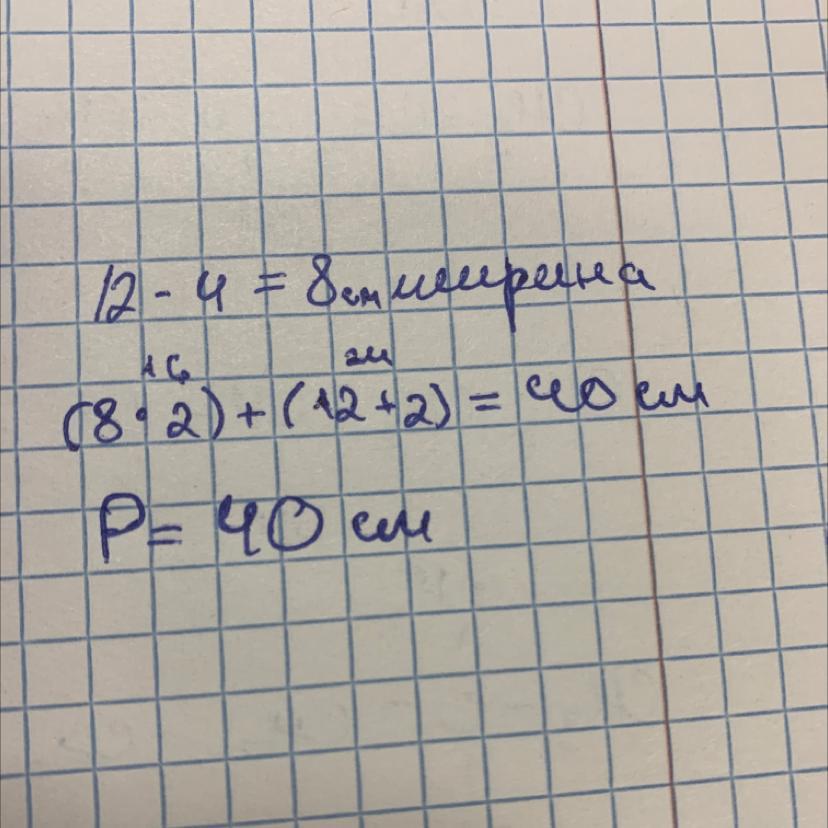 12 - 4 = 8см ширина
16 24
(8 · 2) + (12 + 2) = 40 см
P = 40 см